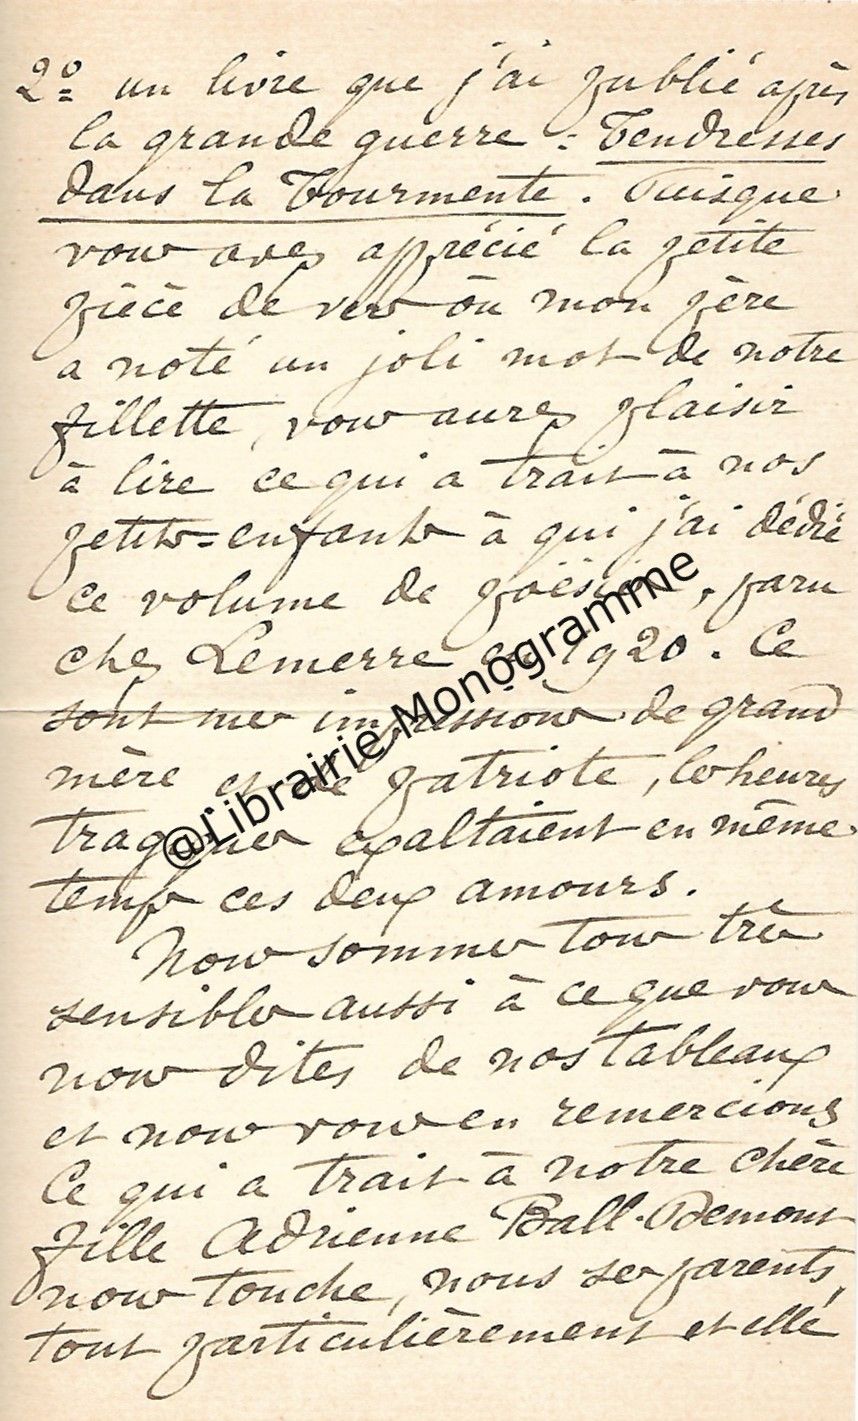 2º un livre que j'ai publié après
la grande guerre : Tendresses
dans la Tourmente. Puisque
vous avez apprécié la petite
pièce de vers où mon père
a noté un joli mot de notre
fillette, vous aurez plaisir
à lire ce qui a trait à nos
petits-enfants à qui j'ai dédié
ce volume de poësies, paru
chez Lemerre en 1920. Ce
sont mes impressions de grand
mère et de patriote, les heures
tragiques exaltaient en même
temps ces deux amours.
Nous sommes tous très
sensibles aussi à ce que vous
nous dites de nos tableaux
et nous vous en remercions
Ce qui a trait à notre chère
fille Adrienne Ball-Demont
nous touche, nous ses parents,
tout particulièrement et elle
@Librairie Monogramme